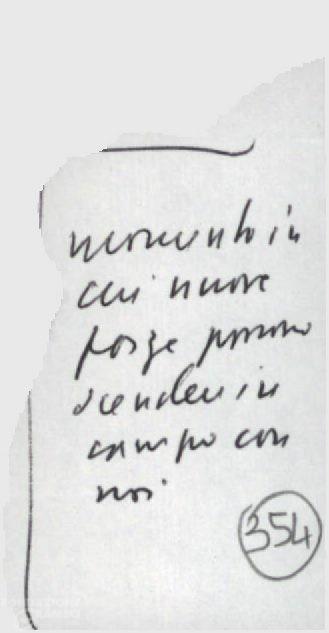 momento in
cui nuove
forze possono
scendere in
campo con
noi.
354